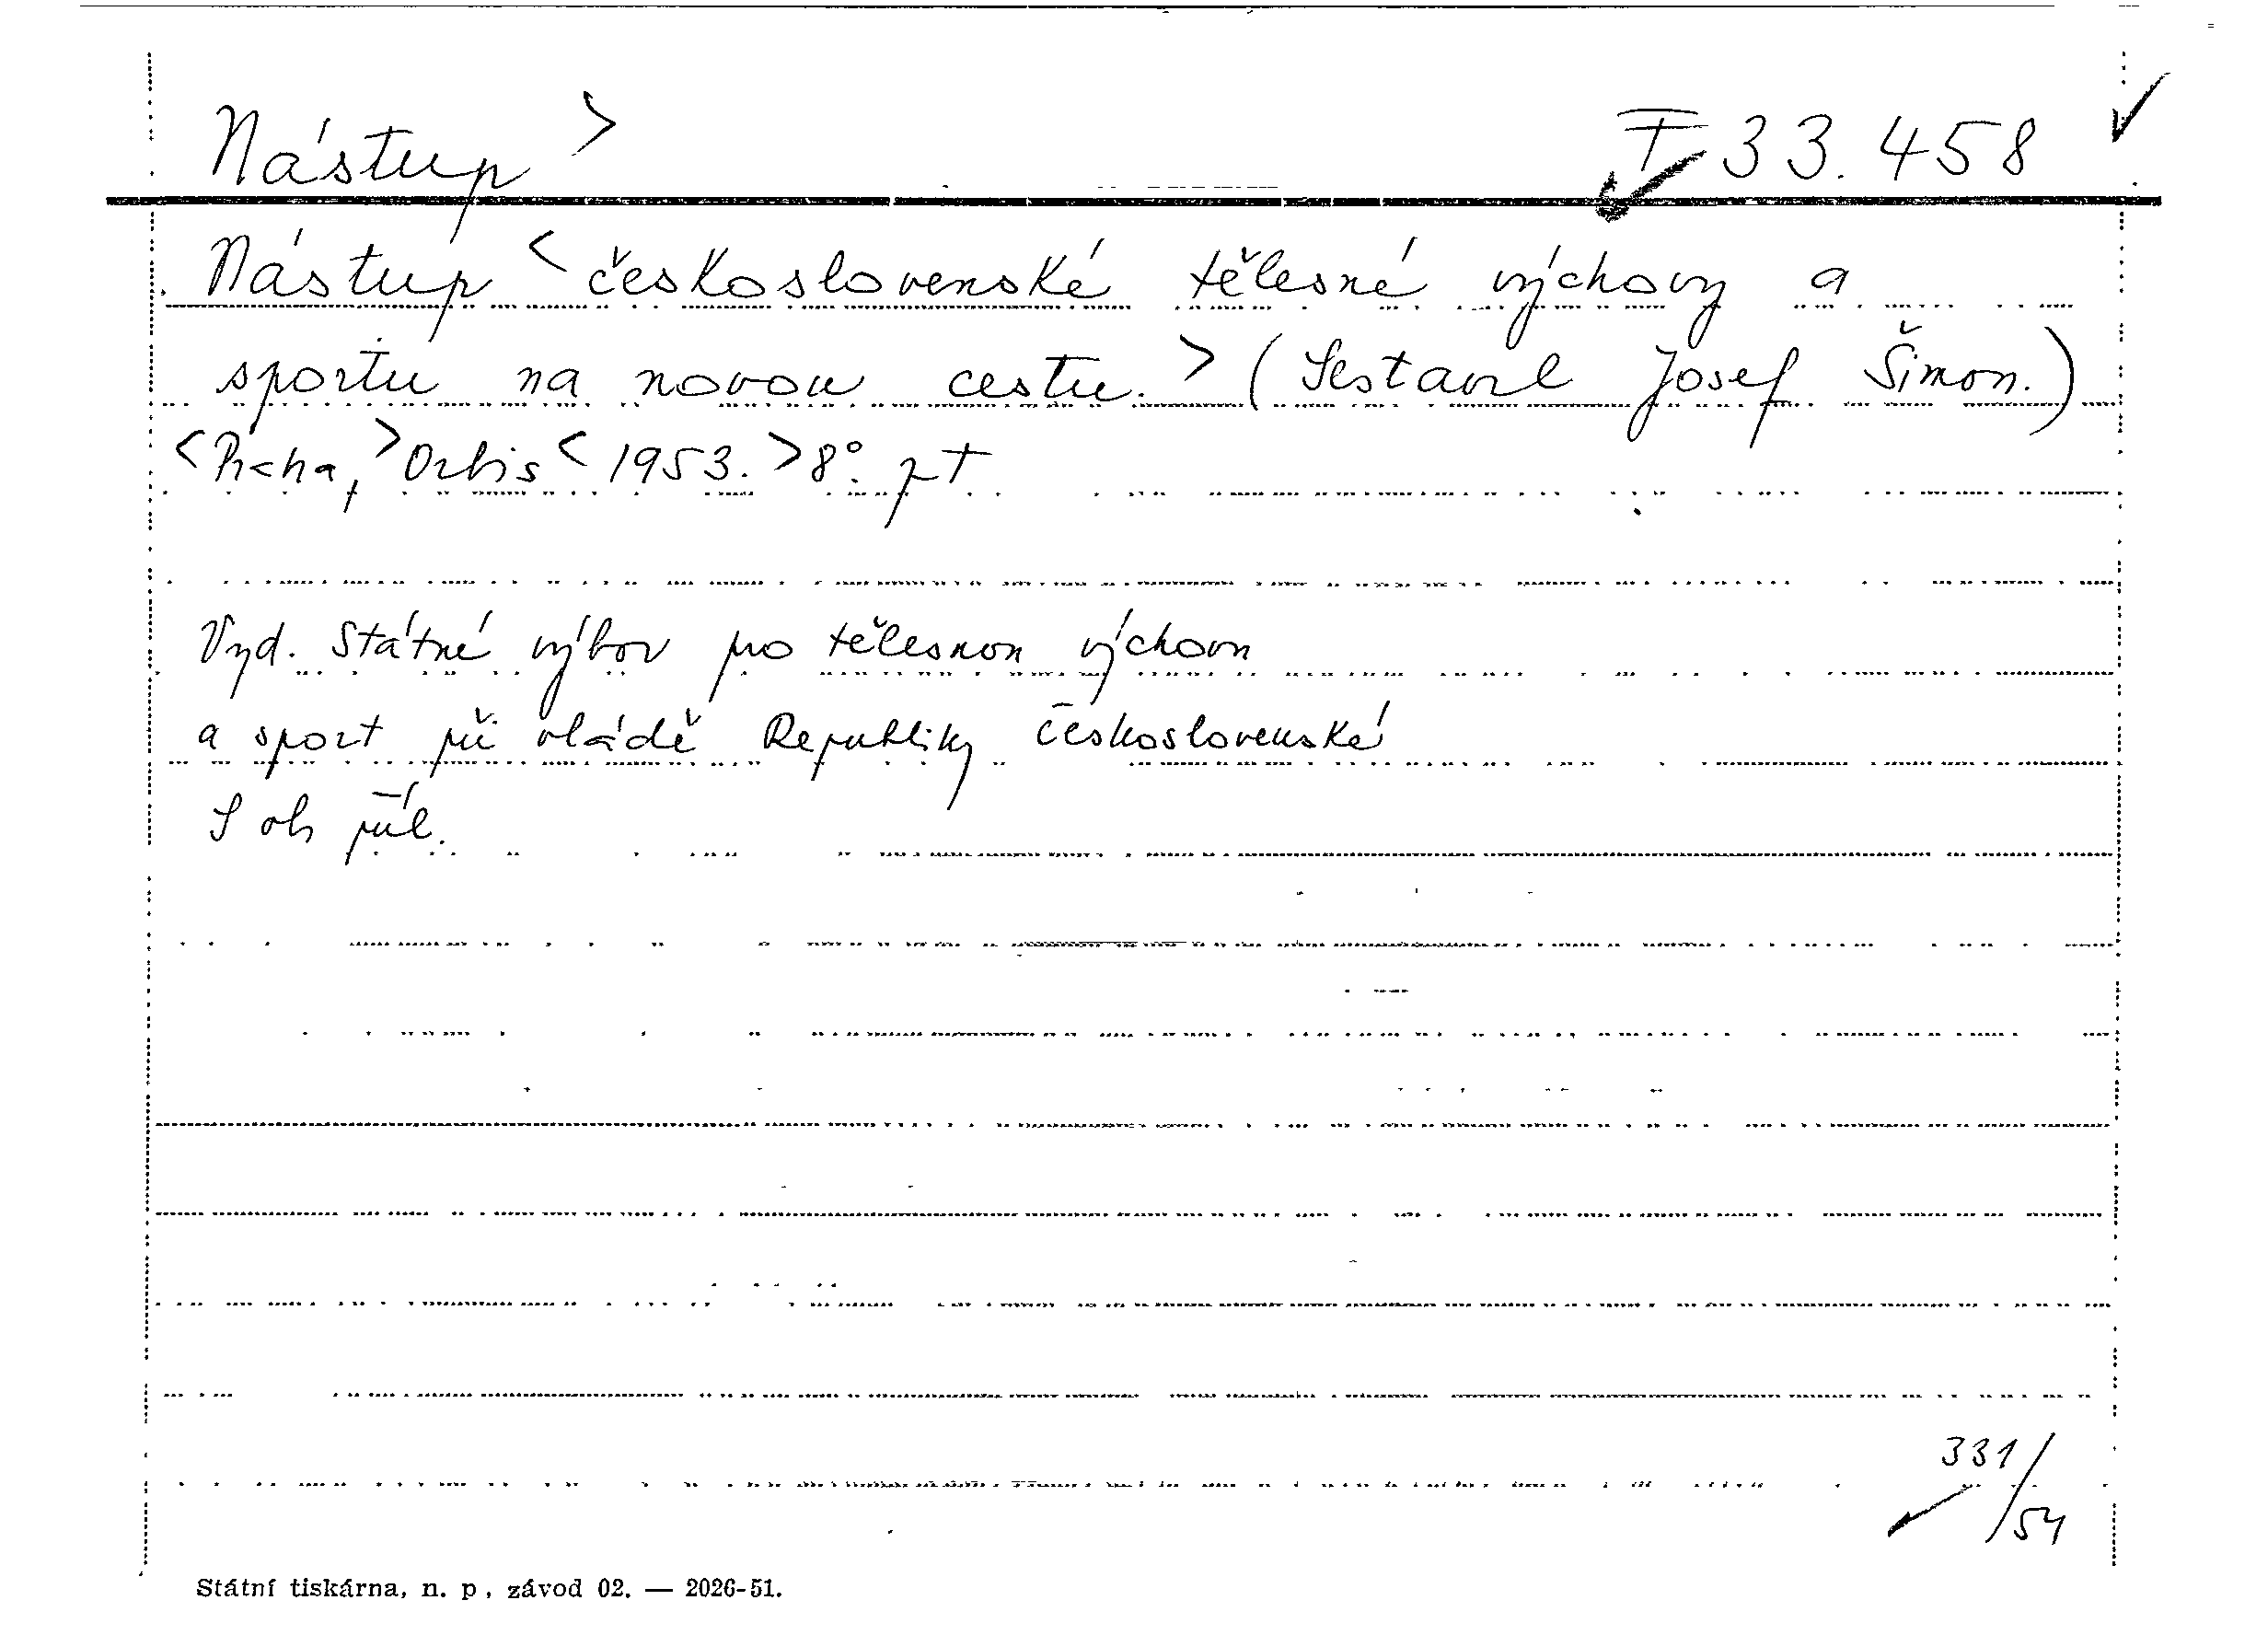 Nástup > I 33.458
Nástup < československé tělesné výchovy a
sportu na novou cestu. > (Sestavil Josef Šimon.)
< Praha, > Orbis < 1953. > 8°.
Vyd. Státní výbor pro tělesnou výchovu
a sport při vládě Republiky československé
S ob příl.
331/54
Státní tiskárna, n. p., závod 02. — 2026-51.